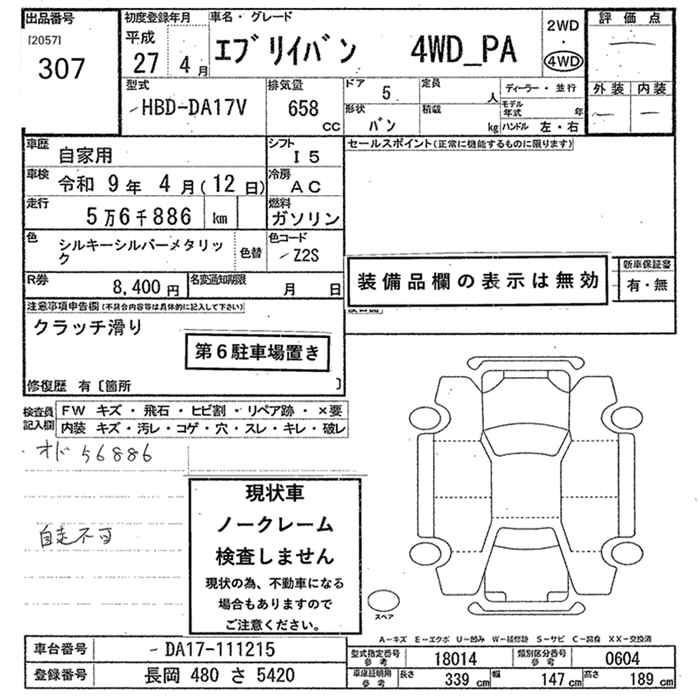 出品番号
[2057]
307
初度登録年月
平成
27 4月
車名・グレード
エブリイバン 4WD_PA
2WD
・
4WD
評価点
外装 内装
型式
HBD-DA17V
排気量
658
CC
ドア 5
定員
人
形状
バン
積載
kg
ディーラー・並行
モデル年式 年
ハンドル 左・右
車歴
自家用
シフト
I5
セールスポイント(正常に機能するものに限ります)
車検
令和 9年 4月(12日)
冷房
AC
走行
5万6千886 km
燃料
ガソリン
色
シルキーシルバーメタリッ
ク
色替
色コード
Z2S
R券
8,400円
名変通知期限
月 日
装備品欄の表示は無効
新車保証書
有・無
注意事項申告欄(不具合内容等は具体的に記入して下さい)
クラッチ滑り
第6駐車場置き
修復歴 有〔箇所 〕
検査員
記入欄
FW キズ・飛石・ヒビ割・リペア跡・×要
内装 キズ・汚レ・コゲ・穴・スレ・キレ・破レ
オド 56886
自走不可
現状車
ノークレーム
検査しません
現状の為、不動車になる
場合もありますので
ご注意ください。
スペア
A-キズ E-エクボ U-凹み W-補修跡 S-サビ C-腐食 XX-交換済
車台番号
DA17-111215
登録番号
長岡 480 さ 5420
型式指定番号
参考
18014
類別区分番号
参考
0604
車庫証明用
参考
長さ
339 cm
幅
147 cm
高さ
189 cm